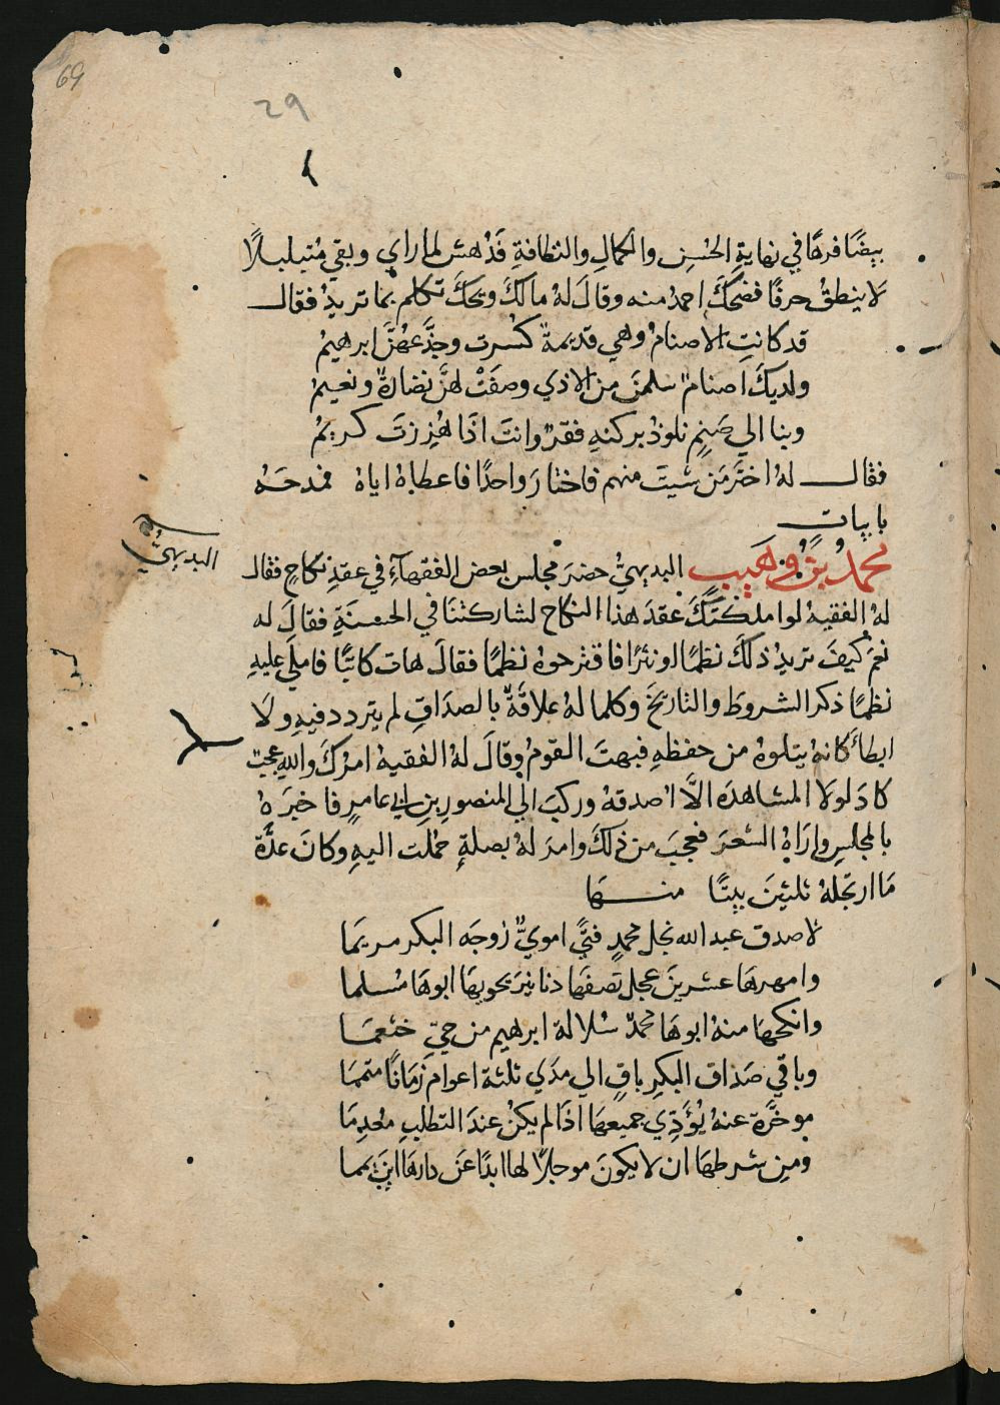 69
29
بيضًا فرهًا في نهايةِ الحُسنِ والكمالِ والنظافةِ فَدُهش لما راي وبقي مُتبلبلًا
لا ينطقُ حرفًا فضحكَ احمدُ منه وقالَ لهُ مالكَ ويحكَ تكلم بما تريدُ فقال
قد كانتِ الاصنامُ وهي قديمةٌ كُسرت وجذَّعهُنَّ ابرهيمُ
ولديكَ اصنامٌ سلمنَ من الاذي وصفَتْ لهنَّ نضارةٌ ونعيمُ
وبنا الي صَنمٍ نلوذُ بركنهِ فقرٌ وانتَ اذَا هُززتَ كريمُ
فقال لهُ اختَر مَن شيتَ منهم فاختارَ واحدًا فاعطاهُ اياهُ فمدحَهُ
بابيات
البديهيُّ
محمدُ بنُ وُهَيب البديهيُّ حضرَ مجلس بعض الفقهآءِ في عقدِ نكاحٍ فقال
لهُ الفقيهُ لو املكتَكَ عقدَ هذا النكاح لشاركتنَا في الحسنَةِ فقالَ له
نعم كيفَ تريدُ ذلكَ نظمًا او نثرًا فاقترحوهُ نظمًا فقالَ هات كاتبًا فاملَي عليهِ
نظمًا ذكر الشروطَ والتاريخَ وكلما لهُ علاقةٌ بالصدَاقِ لم يتردد فيهِ ولَا
ابطأَ كانهُ يتلوهُ من حفظهِ فبهتَ القومُ وقالَ لهُ الفقيهُ امرُكَ واللهِ عجبٌ
كادَ لولا المشاهدَه الَّا اصدقهُ وركبَ الي المنصورِ بنِ ابي عامرٍ فاخبرَهُ
بالمجلسِ وارَاهُ الشعرَ فعجبَ من ذلكَ وامرَ لهُ بصلةٍ حُملت اليهِ وكانَ عدَّة
مَا ارتجلهُ ثلثينَ بيتًا منهَا
لاصدق عبد الله نجل محمدٍ فتًي امويٌّ زوجَه البكر مريمَا
وامهرهَا عشرينَ عجل نصفهَا دنانيرَ يحويهَا ابوهَا مُسلما
وانكحهَا منهُ ابوهَا محمدٌ سُلالة ابرهيم من حيّ خثعمَا
وباقي صَداق البكرِ باقٍ الي مدَي ثلثة اعوام زمانًا متممَا
موخَّرة عنهُ يُؤدِّي جميعهَا اذَا لم يكنُ عندَ التطلبِ مُعدِمَا
ومِن شرطهَا ان لا يكونَ موجلًا لها ابدًا عَن دارهَا